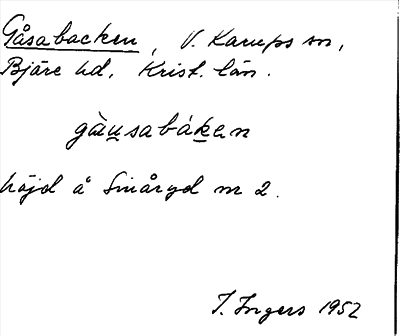 Gåsabacken, V. Karups sn,
Bjäre hd, Krist. län.
gàusabáken
höjd å Småryd nr 2.
I. Ingers 1952